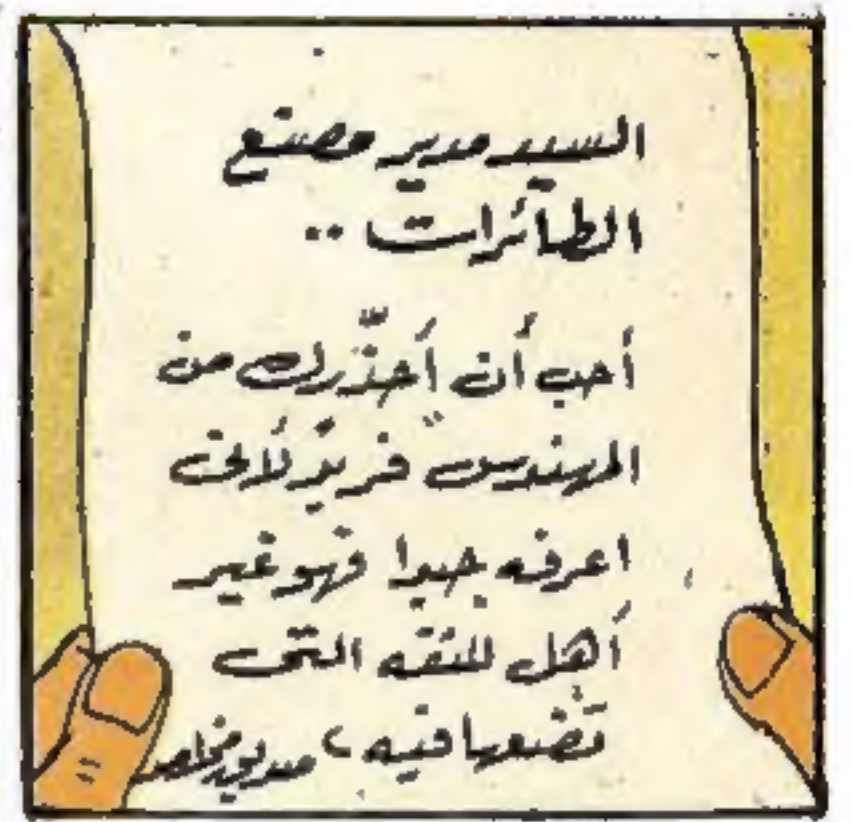 السيد مدير مصنع
الطائرات ..
أحب أن أحذّرك من
المهندس "فريد" لأنى
اعرفه جيدا فهو غير
أهل للثقه التى
تضعها فيه ، صديق مخلص